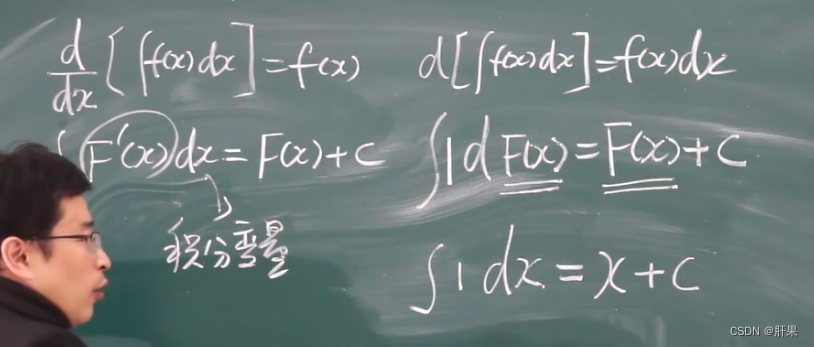 d/dx [∫f(x)dx]=f(x) d[∫f(x)dx]=f(x)dx
∫F'(x)dx=F(x)+C ∫1dF(x)=F(x)+C
积分变量
∫1dx=x+C
CSDN @肝果